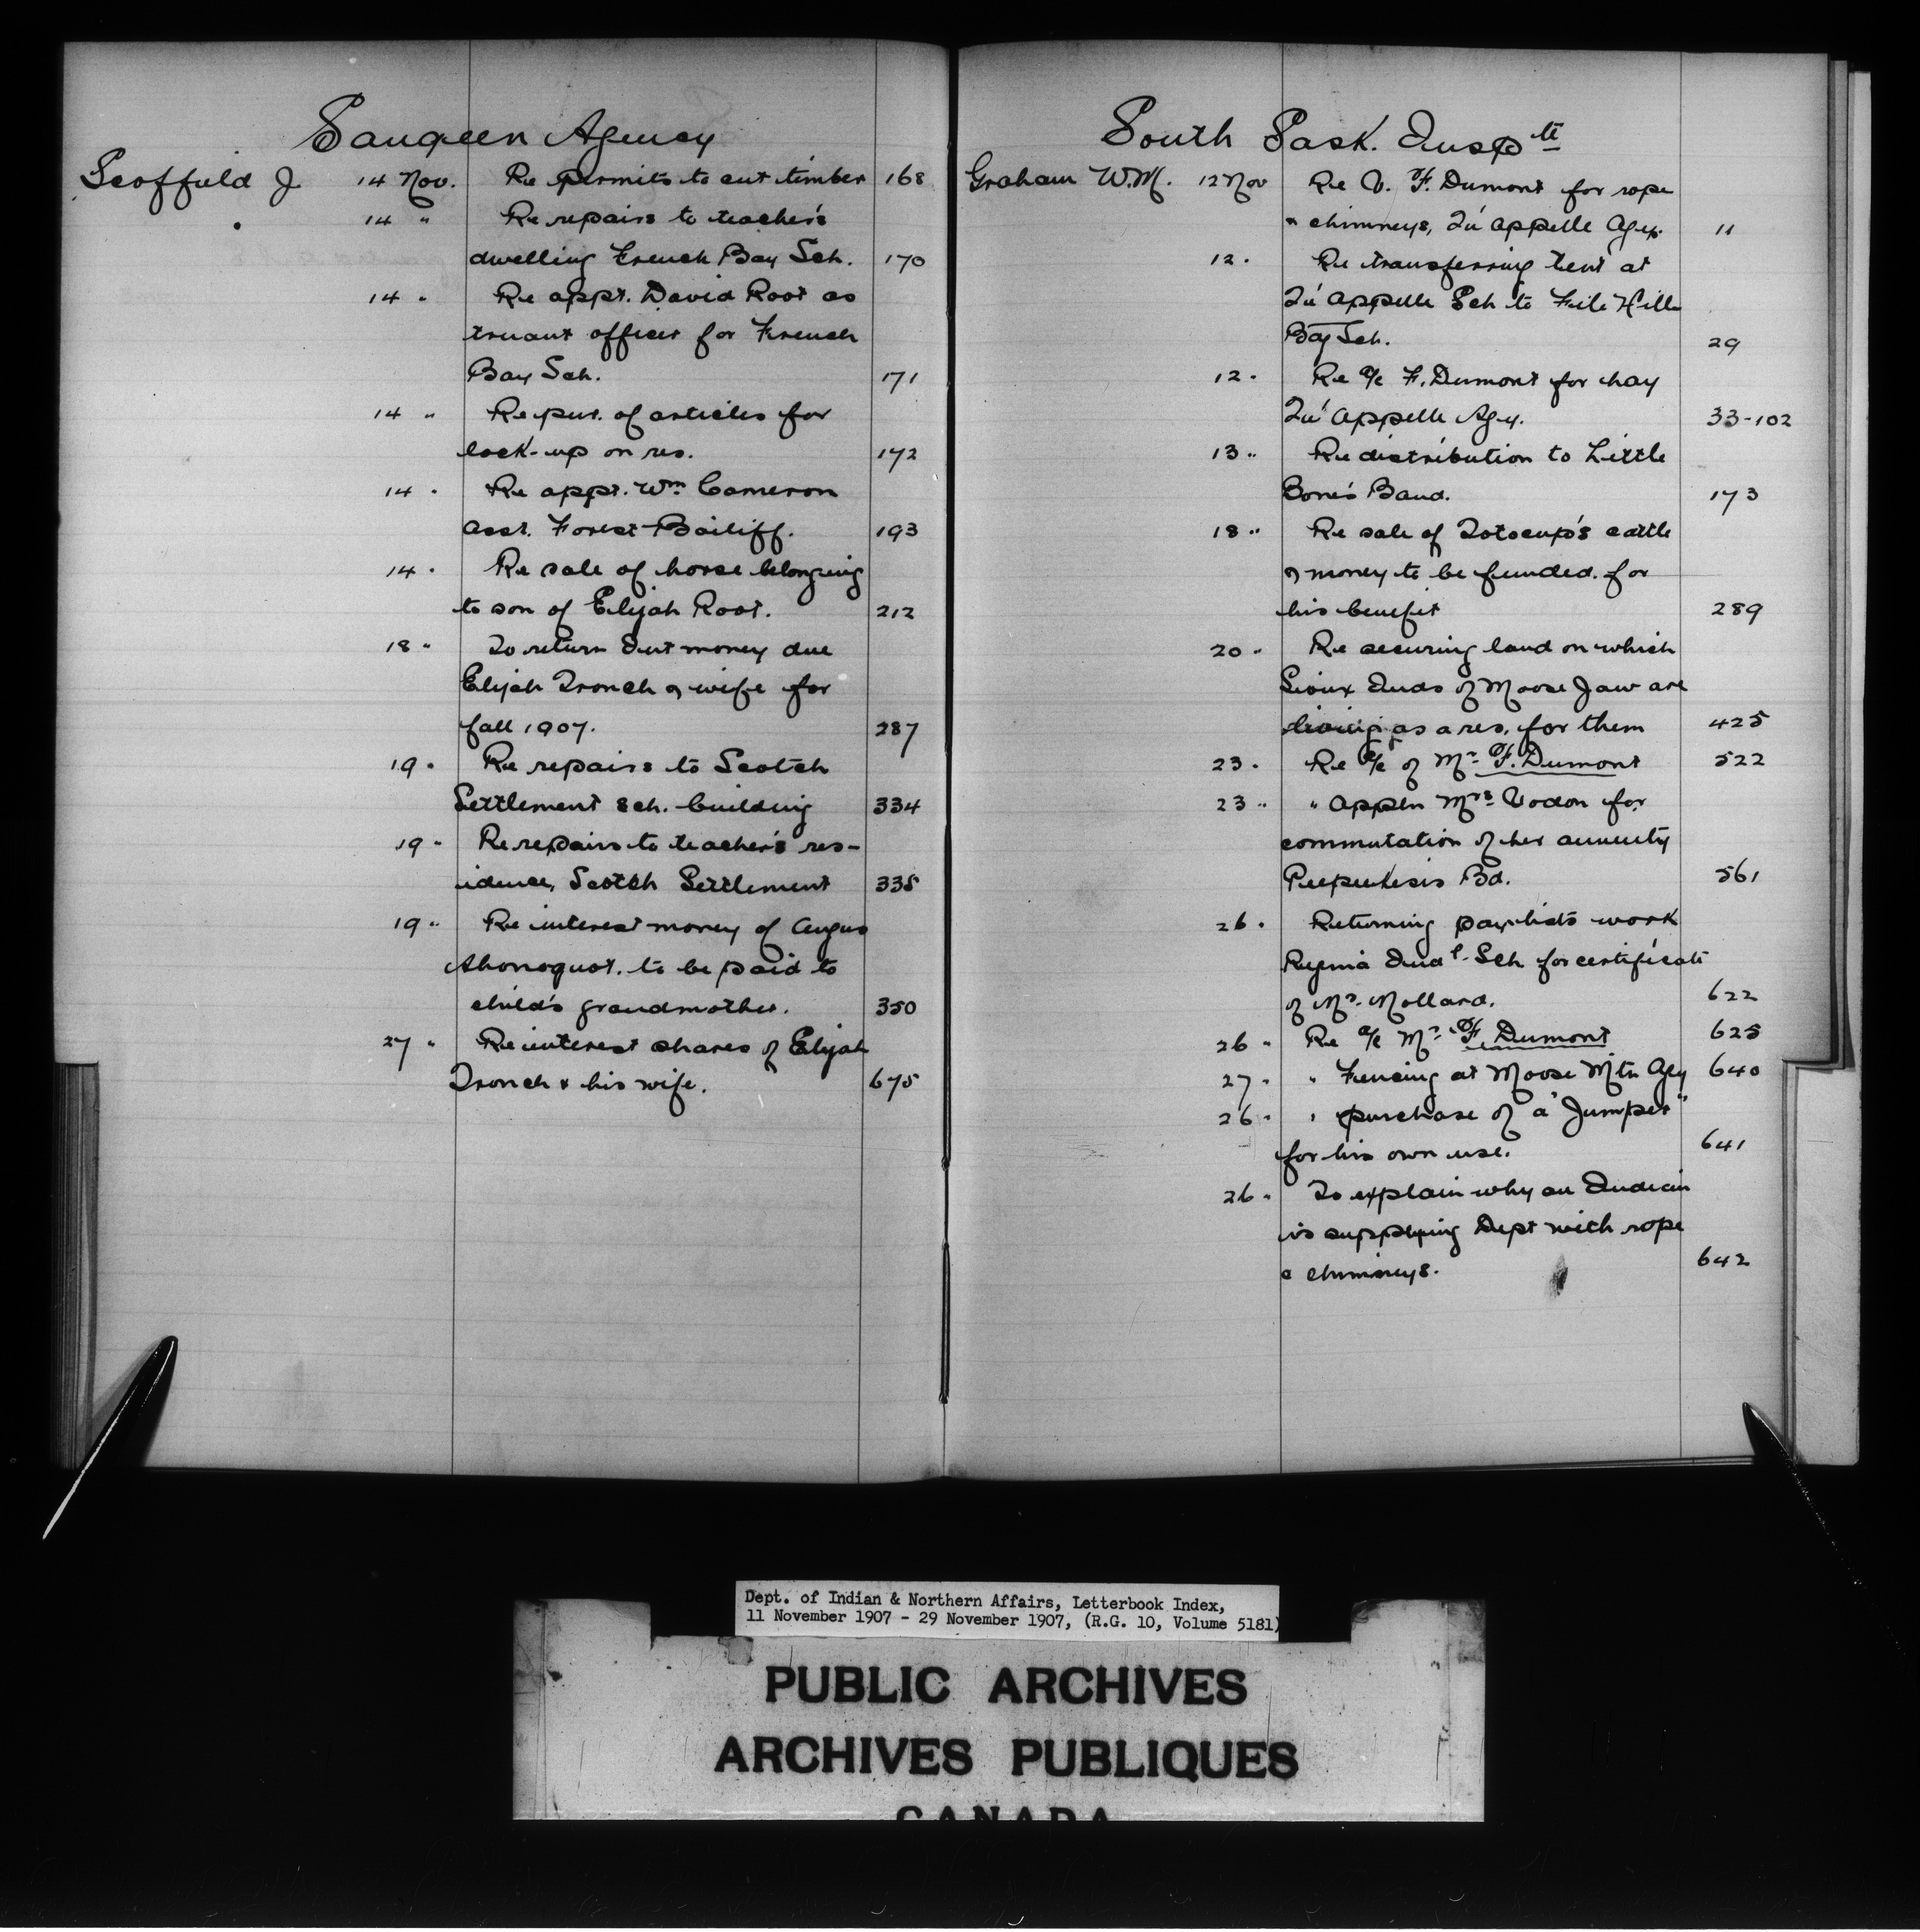 Saugeen Agency
Scoffield J 14 Nov. Re permits to cut timber 168
14 " Re repairs to teacher's
dwelling French Bay Sch. 170
14 " Re appt. David Root as
truant officer for French
Bay Sch. 171
14 " Re pur. of articles for
lock-up on res. 172
14 " Re appt. Wm Cameron
asst. Forest Bailiff. 193
14 " Re sale of horse belonging
to son of Elijah Root. 212
18 " To return Int money due
Elijah Tronch & wife for
fall 1907. 287
19 " Re repairs to Scotch
Settlement Sch. building 334
19 " Re repairs to teacher's res-
idence, Scotch Settlement 335
19 " Re interest money of Angus
Ahonoquot. to be paid to
child's grandmother. 350
27 " Re interest shares of Elijah
Tronch & his wife. 675
South Sask. Inspte
Graham W.M. 12 Nov Re V. F. Dumont for rope
& chimneys, Qu'appelle Agy. 11
12 " Re transferring tent at
Qu'appelle Sch to File Hills
Bdg Sch. 29
12 " Re a/c F. Dumont for hay
Qu'appelle Agy. 33-102
13 " Re distribution to Little
Bone's Band. 173
18 " Re sale of Totocup's cattle
& money to be funded for
his benefit 289
20 " Re securing land on which
Sioux Inds of Moose Jaw are
living as a res. for them 425
23 " Re a/c of Mr F. Dumont 522
23 " " Appln Mrs Vodon for
commutation of her annuity
Peepeekesis Bd. 561
26 " Returning pay-lists work
Regina Indl. Sch for certificate
of Mr. Mollard. 622
26 " Re a/c Mr F. Dumont 625
27 " " Fencing at Moose Mtn Agy 640
26 " " purchase of a "Jumper"
for his own use. 641
26 " To explain why an Indian
is supplying Dept with rope
& chimneys. 642
Dept. of Indian & Northern Affairs, Letterbook Index,
11 November 1907 - 29 November 1907, (R.G. 10, Volume 5181)
PUBLIC ARCHIVES
ARCHIVES PUBLIQUES
CANADA